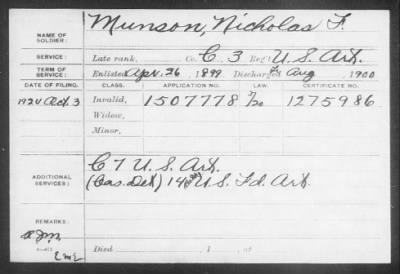 NAME OF SOLDIER: Munson, Nicholas F.
SERVICE: Late rank, Co. C 3 Reg't U.S. Art.
TERM OF SERVICE: Enlisted Apr. 26, 1899, Discharged Aug 1900
DATE OF FILING. CLASS. APPLICATION NO. LAW. CERTIFICATE NO.
1924 Oct. 3 Invalid, 1507778 1275986
Widow,
Minor,
ADDITIONAL SERVICES: C 7 U.S. Art.
(Cas. Det) 143rd U.S. Fd. Art.
REMARKS:
Died , 1 , at